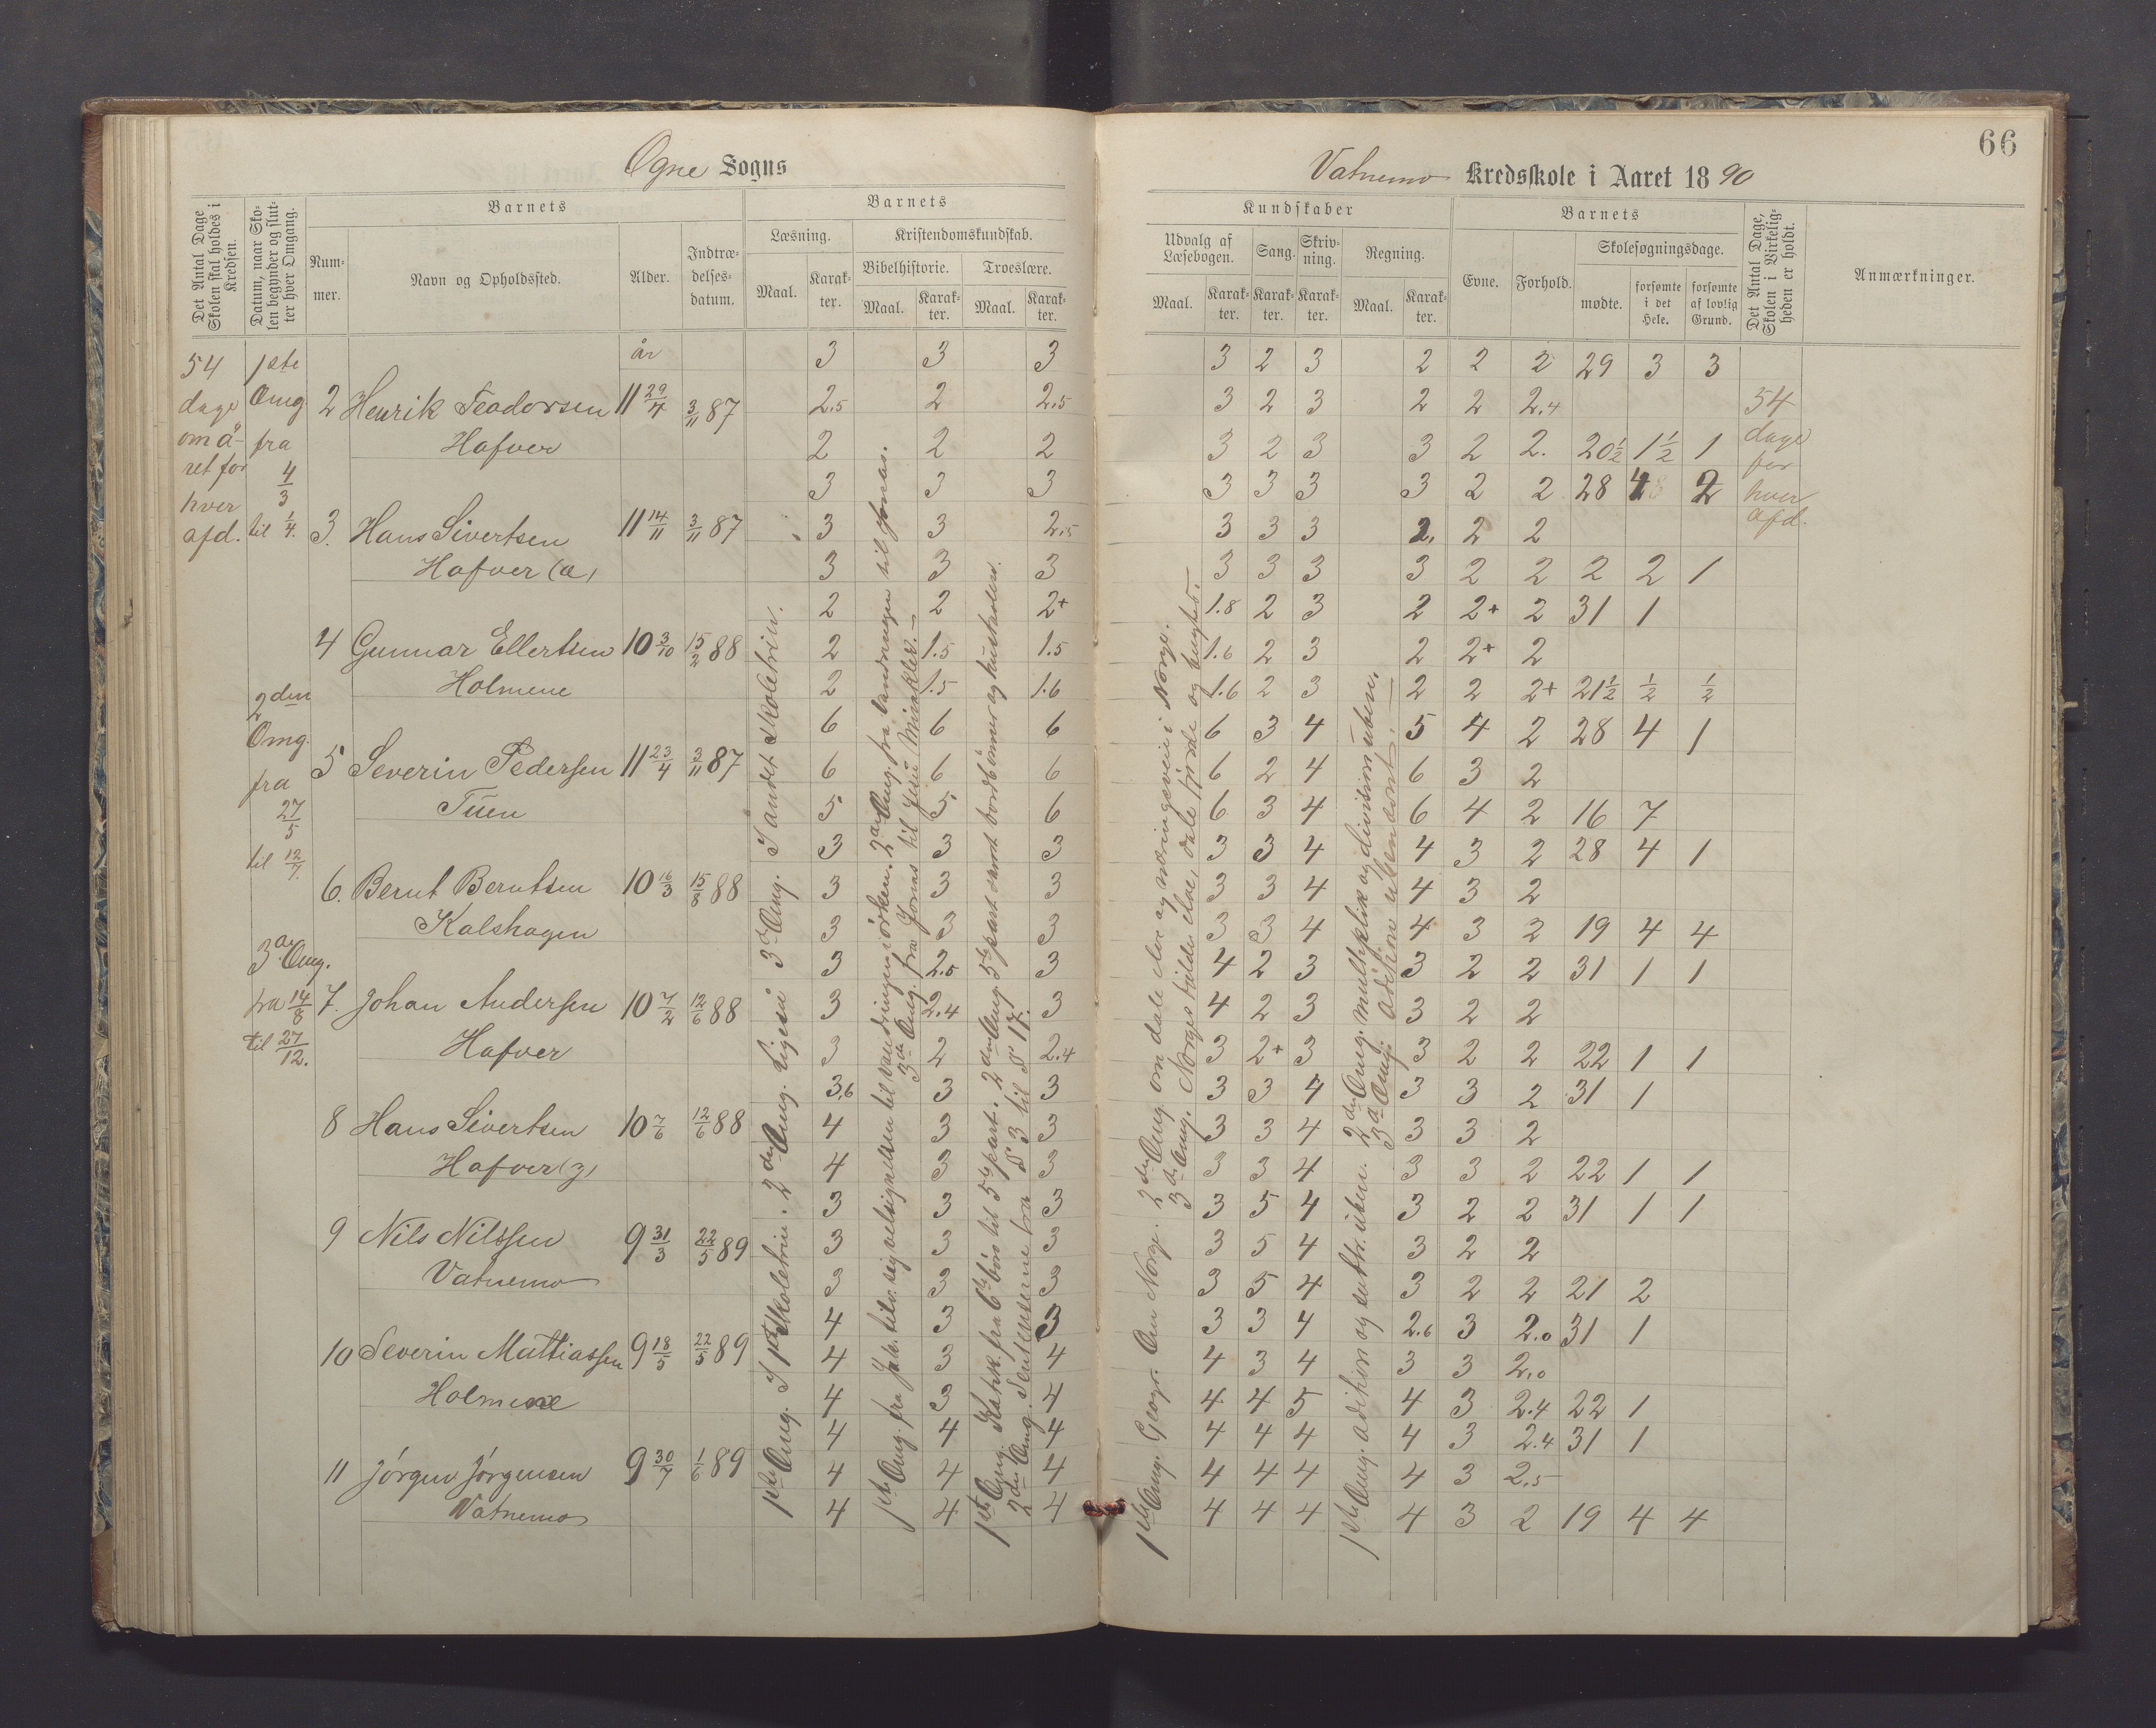 66
Ogne Sogns
Vatnemo Kredsskole i Aaret 1890
Det Antal Dage Skolen skal holdes i Kredsen.
Datum, naar Skolen begynder og slutter hver Omgang.
Barnets
Nummer.
Navn og Opholdssted.
Alder.
Indtrædelsesdatum.
Barnets
Læsning.
Maal.
Karakter.
Kristendomskundskab.
Bibelhistorie.
Maal.
Karakter.
Troeslære.
Maal.
Karakter.
Kundskaber
Udvalg af Læsebogen.
Maal.
Karakter.
Sang.
Karakter.
Skrivning.
Karakter.
Regning.
Maal.
Karakter.
Barnets
Evne.
Forhold.
Skolesøgningsdage.
mødte.
forsømte i det Hele.
forsømte af lovlig Grund.
Det Antal Dage, Skolen i Virkeligheden er holdt.
Anmærkninger.
54 dage om året for hver afd.
1ste Omg fra 4/3 til 1/4.
2den Omg. fra 27/5 til 12/7.
3die Omg. fra 14/8 til 27/12.
år
3 3 3 3 2 3 2 2 2 29 3 3
2 Henrik Teodorsen 11 29/4 3/11 87 2.5 2 2.5 3 2 3 2 2 2.4
Hafver 2 2 2 3 2 3 3 2 2. 20½ 1½ 1
3 3 3 3 3 3 3 2 2 28 4 2
3. Hans Sivertsen 11 14/11 3/11 87 3 3 2.5 3 3 3 2. 2 2
Hafver (a) 3 3 3 3 3 3 3 2 2 2 2 1
2 2 2+ 1.8 2 3 2 2+ 2 31 1
4 Gunnar Ellertsen 10 3/10 15/2 88 2 1.5 1.5 1.6 2 3 2 2+ 2
Holmene 2 1.5 1.6 1.6 2 3 2 2 2+ 21½ ½ ½
6 6 6 6 3 4 5 4 2 28 4 1
5 Severin Pedersen 11 23/4 3/11 87 6 6 6 6 2 4 6 3 2
Tuen 5 5 6 6 3 4 6 4 2 16 7
3 3 3 3 3 4 4 3 2 28 4 1
6. Bernt Berntsen 10 16/3 15/8 88 3 3 3 3 3 4 4 3 2
Kalshagen 3 3 3 3 3 4 4 3 2 19 4 4
3 2.5 3 4 2 3 3 2 2 31 1 1
7. Johan Andersen 10 7/2 12/6 88 3 2.4 3 4 2 3 3 2 2
Hafver 3 2 2.4 3 2+ 3 3 2 2 22 1 1
3.6 3 3 3 3 4 3 3 2 31 1
8 Hans Sivertsen 10 7/6 12/6 88 4 3 3 3 3 4 3 3 2
Hafver (g) 4 3 3 3 3 4 3 3 2 22 1 1
3 3 3 3 5 4 3 2 2 31 1 1
9 Nils Nilssen 9 31/3 22/5 89 3 3 3 3 5 4 3 2 2
Vatnemo 3 3 3 3 5 4 3 2 2 21 2
4 3 3 3 3 4 2.6 3 2.0 31 1
10 Severin Mattiassen 9 18/5 22/5 89 4 3 4 4 3 4 3 3 2.0
Holmene 4 3 4 4 4 5 4 3 2.4 22 1
4 4 4 4 4 4 4 3 2.4 31 1
11 Jørgen Jørgensen 9 30/7 1/6 89 4 4 4 4 4 4 4 3 2.5
Vatnemo 4 4 4 4 4 4 4 3 2 19 4 4
54 dage for hver afd.
1ste Omg. I 1ste Skoletrin. 2den Omg. Ligeså 3die Omg. I andet Skoletrin.
1ste Omg. fra Jak. tilv. sig velsignelsen til vandringen i ørken. 2den Omg. fra vandringen til Jonas.
3die Omg. fra Jonas til Jesu Mirakler.
1ste Omg. Katek. fra 6te bøn til 5te part. 2den Omg. 5te part samt bordbønner og hustavlen.
2den Omg. Sentenserne fra § 3 til § 17.
1ste Omg. Geogr. Om Norge. 2den Omg. om dale elve og næringsveie i Norge.
3die Omg. Norges fjelde elve, dale fjorde og bugter.
1ste Omg. adition og subtr. uben. 2den Omg. multiplik og division uben.
3die Omg. adition ubenævnt.